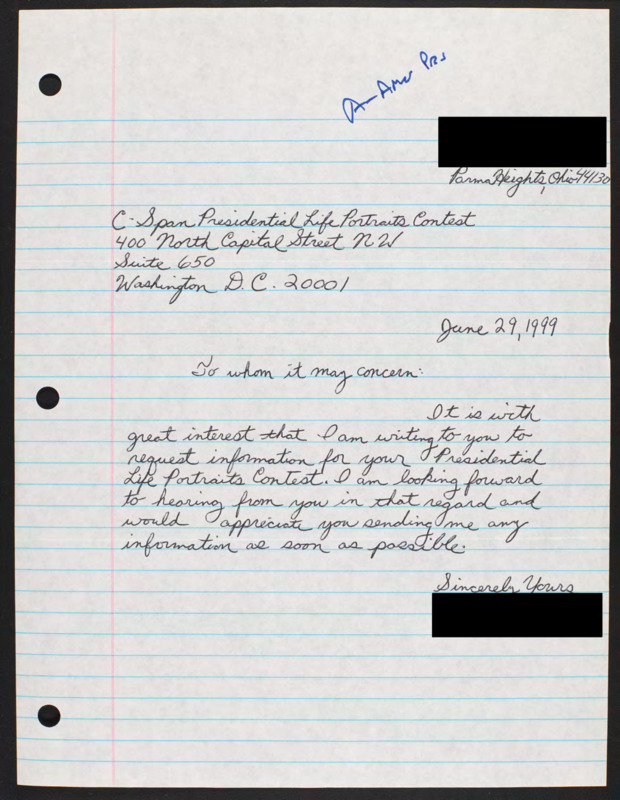 Parma Heights, Ohio 44130
C-Span Presidential Life Portraits Contest
400 North Capital Street NW
Suite 650
Washington D.C. 20001
June 29, 1999
To whom it may concern:
It is with
great interest that I am writing to you to
request information for your Presidential
Life Portraits Contest. I am looking forward
to hearing from you in that regard and
would appreciate you sending me any
information as soon as possible.
Sincerely Yours